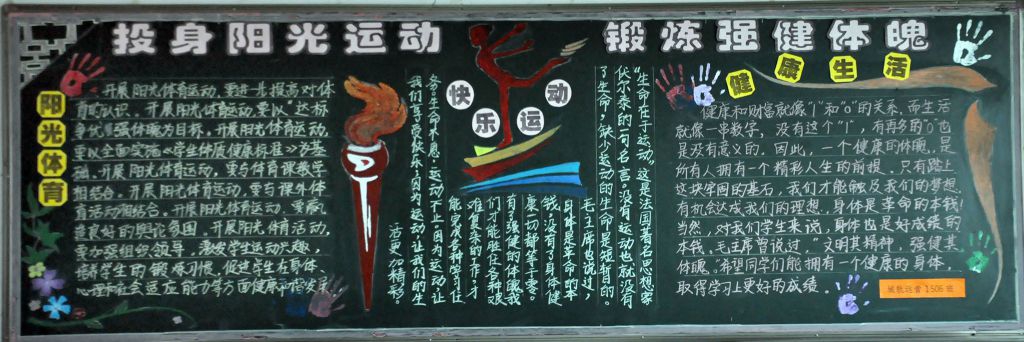 投身阳光运动 锻炼强健体魄
阳光体育
开展阳光体育运动，要进一步提高对体
育的认识。开展阳光体育运动，要以"达标
争优、强体魄为目标。开展阳光体育运动，
要以全面实施《学生体质健康标准》为基
础。开展阳光体育运动，要与体育课教学
相结合。开展阳光体育运动，要与课外体
育活动相结合。开展阳光体育运动，要营
造良好的舆论氛围。开展阳光体育活动，
要加强组织领导，激发学生运动兴趣，
培养学生的锻炼习惯，促进学生在身体、
心理和社会适应能力等方面健康和谐发展
快乐运动
"生命在于运动。这是法国著名思想家
伏尔泰的一句名言。没有运动也就没有
了生命，缺少运动的生命是短暂的。
毛主席也说过，
身体是革命的本
钱，没有了身体健
康一切都等于零。
有了强健的体魄我
们才能胜任各种艰
难复杂的工作，才
能完成各种学习任
务。生命不息，运动不止。因为运动，让
我们享受快乐，因为运动，让我们的生
活更加精彩。
健康生活
健康和财富就像"1"和"0"的关系。而生活
就像一串数字，没有这个"1"，有再多的"0"也
是没有意义的。因此，一个健康的体魄，是
所有人拥有一个精彩人生的前提。只有踏上
这块牢固的基石，我们才能触及我们的梦想，
有机会达成我们的理想。身体是革命的本钱！
当然，对我们学生来说，身体也是好成绩的
本钱。毛主席曾说过，"文明其精神，强健其
体魄。"希望同学们能拥有一个健康的身体，
取得学习上更好的成绩。
1506班